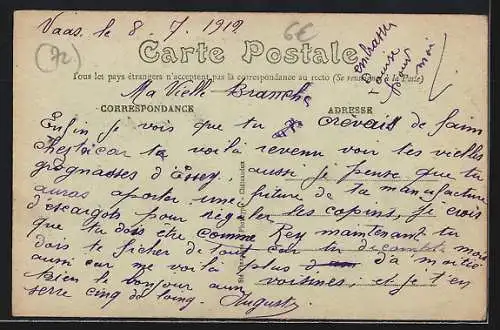 Vaas. le 8 7. 1912
6€
(72)
embrasse
Louise
pour
moi
Carte Postale
Tous les pays étrangers n'acceptent pas la correspondance au recto (Se renseigner à la Poste)
Ma Vielle Branche
CORRESPONDANCE
ADRESSE
Enfin je vois que tu crevais de faim
car te voilà revenu voir tes vielles
grognasses d'Essey, aussi je pense que tu
auras aporter une friture de ta manufacture
d'escargots pour régaler tes copins, je crois
que tu dois etre comme Rey maintenant tu
dois te ficher de tout car tu
aussi car me voilà plus d'a moitié
bien le bonjour aux voisines, et je t'en
serre cinq de loing. August